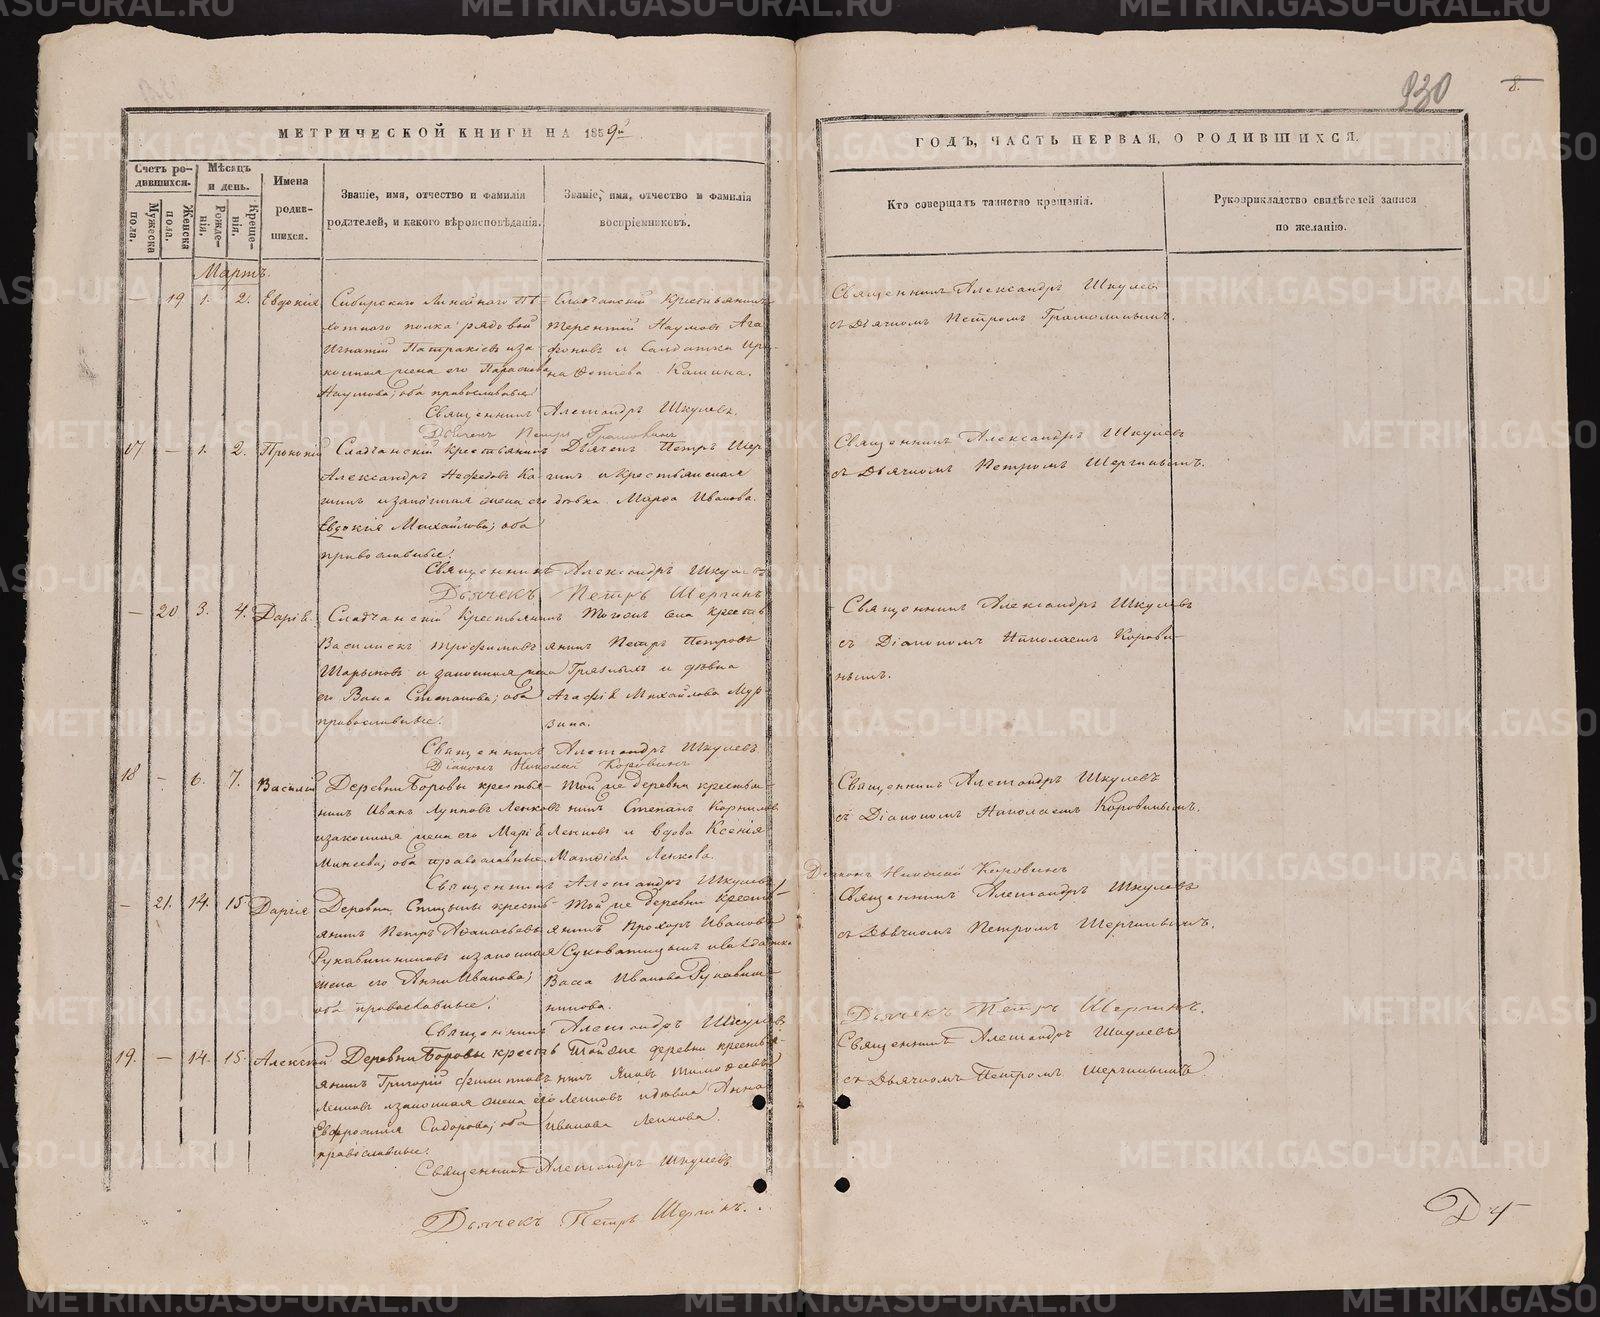 930
8.
МЕТРИЧЕСКОЙ КНИГИ НА 1859й
ГОДЪ, ЧАСТЬ ПЕРВАЯ, О РОДИВШИХСЯ.
Счетъ родившихся.
Мужеска пола.
Женска пола.
Мѣсяцъ и день.
Рожденія.
Крещенія.
Имена родившихся.
Званіе, имя, отчество и фамилія
родителей, и какого вѣроисповѣданія.
Званіе, имя, отчество и фамилія
воспріемниковъ.
Кто совершалъ таинство крещенія.
Рукоприкладство свидѣтелей записи
по желанію.
Мартъ.
— 19 1. 2. Евдокія
Сибирскаго Линейнаго Пѣ-
хотнаго полка рядовой
Игнатій Патракіевъ и за-
конная жена его Параскова
Наумова; оба православные.
Сладчанскій Крестьянинъ
Терентій Наумовъ Ага-
фоновъ и Солдатка Ири-
на Фотіева Кашина.
Священникъ Александръ Шкулевъ
съ Дьячкомъ Петромъ
Священникъ Александръ Шкулевъ.
Дьячекъ Петръ
17 — 1. 2. Прокопій
Сладчанскій крестьянинъ
Александръ Нефедовъ Ка-
шинъ и законная жена его
Евдокія Михайлова; оба
православные.
Дьячекъ Петръ Шер-
гинъ и Крестьянская
дѣвка Марѳа Иванова.
Священникъ Александръ Шкулевъ
съ Дьячкомъ Петромъ Шергинымъ.
Священникъ Александръ Шкулевъ
Дьячекъ Петръ Шергинъ
— 20 3. 4. Дарія.
Сладчанскій Крестьянинъ
Василискъ Трофимовъ
Шарыповъ и законная жена
его Васа Степанова; оба
православные.
Тогоже села крестья-
янинъ Петръ Петровъ
Грязныхъ и дѣвка
Агафія Михайлова Мур-
зина.
Священникъ Александръ Шкулевъ
съ Діакономъ Николаемъ Корови-
нымъ.
Священникъ Александръ Шкулевъ
Діаконъ Николай Коровинъ
18 — 6. 7. Василій
Деревни Боровы крестья-
нинъ Иванъ Лупповъ Ленковъ
и законная жена его Марія
Минеева; оба православные
Той же деревни крестья-
нинъ Степанъ Корниловъ
Ленковъ и вдова Ксенія
Матѳіева Ленкова.
Священникъ Александръ Шкулевъ
съ Діакономъ Николаемъ Коровинымъ.
Священникъ Александръ Шкулевъ
Діаконъ Николай Коровинъ
— 21. 14. 15. Дарія
Деревни Спицыны кресть-
янинъ Петръ Аѳанасьевъ
Рукавишниковъ и законная
жена его Анна Иванова;
оба православные.
Той же деревни кресть-
янинъ Прохоръ Ивановъ
Суховатицынъ и солдатка
Васса Иванова Рукавиш-
никова.
Священникъ Александръ Шкулевъ
съ Дьячкомъ Петромъ Шергинымъ.
Священникъ Александръ Шкулевъ
Дьячекъ Петръ Шергинъ.
19. — 14. 15. Алексѣй
Деревни Боровы кресть-
янинъ Григорій Филипповъ
Ленковъ и законная жена его
Евфросинія Сидорова; оба
православные.
Той же деревни крестья-
нинъ Яковъ Тимофеевъ
Ленковъ и дѣвка Анна
Иванова Ленкова.
Священникъ Александръ Шкулевъ
съ Дьячкомъ Петромъ Шергинымъ.
Священникъ Александръ Шкулевъ
Дьячекъ Петръ Шергинъ.
METRIKI.GASO-URAL.RU